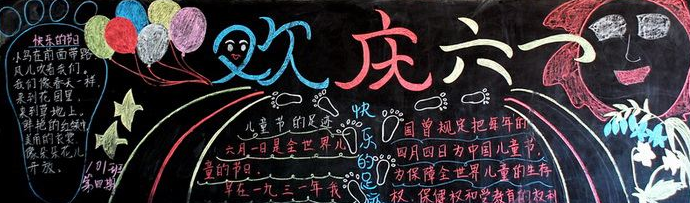 欢庆六一
快乐的节日
小鸟在前面带路
风儿吹着我们。
我们像春天一样,
来到花园里,
来到草地上,
鲜艳的红领巾
美丽的衣裳
像朵朵花儿
开放。
101班
第四期
儿童节的足迹
六月一日是全世界儿
童的节日。
早在一九三一年我
快乐的足迹
国曾规定把每年的
四月四日为中国儿童节,
为保障全世界儿童的生存
权、保健权和受教育的权利